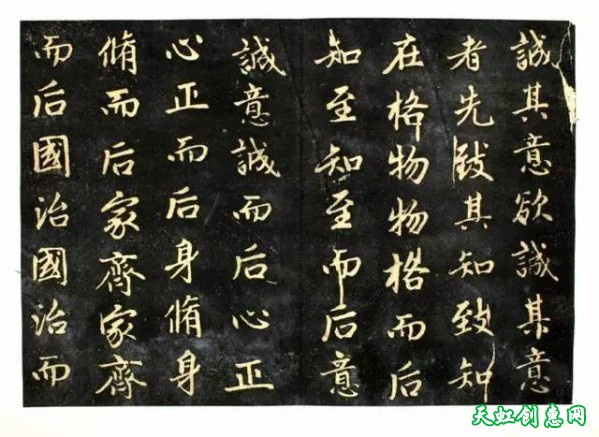 誠其意欲誠其意
者先致其知致知
在格物物格而后
知至知至而后意
誠意誠而后心正
心正而后身脩身
脩而后家齊家齊
而后國治國治而
天虹创惠网